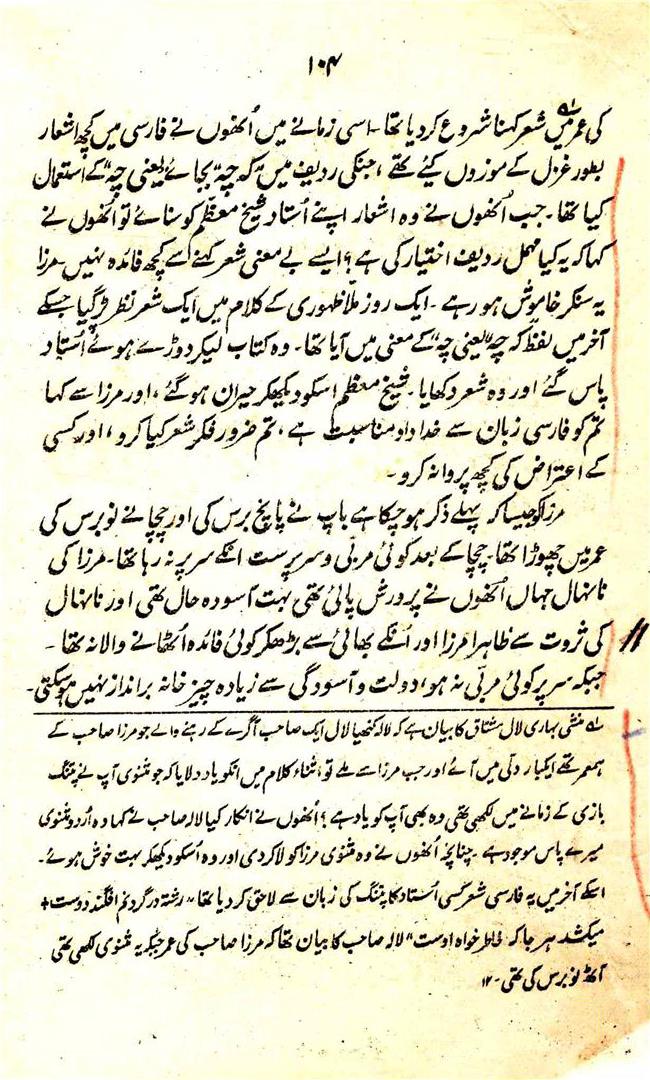 ۱۰۴
کی عمر میں شعر کہنا شروع کر دیا تھا۔ اسی زمانے میں اُنھوں نے فارسی میں کچھ اشعار
بطور غزل کے موزوں کیئے تھے، جنکی ردیف میں "کہ چہ" بجائے "یعنی چہ" کے استعمال
کیا تھا۔ جب اُنھوں نے وہ اشعار اپنے اُستاد شیخ معظّم کو سنائے تو اُنھوں نے
کہا کہ یہ کیا مہمل ردیف اختیار کی ہے؟ ایسے بے معنی شعر کہنے سے کچھ فائدہ نہیں۔ مرزا
یہ سنکر خاموش ہو رہے۔ ایک روز ملّا ظہوری کے کلام میں ایک شعر نظر پڑ گیا جسکے
آخر میں لفظ "کہ چہ" "یعنی چہ" کے معنی میں آیا تھا۔ وہ کتاب لیکر دوڑے ہوئے اُستاد
پاس گئے اور وہ شعر دکھایا۔ شیخ معظم اسکو دیکھکر حیران ہو گئے، اور مرزا سے کہا
تم کو فارسی زبان سے خداداد مناسبت ہے، تم ضرور فکر شعر کیا کرو، اور کسی
کے اعتراض کی کچھ پروا نہ کرو۔
مرزا کو جیسا کہ پہلے ذکر ہو چکا ہے باپ نے پانچ برس کی اور چچا نے نو برس کی
عمر میں چھوڑا تھا۔ چچا کے بعد کوئی مربّی و سرپرست انکے سر پر نہ رہا تھا۔ مرزا کی
نانہال جہاں اُنھوں نے پرورش پائی تھی بہت آسودہ حال تھی اور نانہال
کی ثروت سے ظاہرا مرزا اور اُنکے بھائی سے بڑھکر کوئی فائدہ اُٹھانے والا نہ تھا۔
جبکہ سر پر کوئی مربّی نہ ہو، دولت و آسودگی سے زیادہ چیز خانہ برانداز نہیں ہو سکتی۔
لہ منشی بہاری لال مشتاق کا بیان ہے کہ لالہ کنھیا لال ایک صاحب آگرے کے رہنے والے جو مرزا صاحب کے
ہمعمر تھے ایکبار دلّی میں آئے اور جب مرزا سے ملے تو اثناء کلام میں انکو یاد دلایا کہ جو مثنوی آپ نے پتنگ
بازی کے زمانے میں لکھی تھی وہ بھی آپ کو یاد ہے؟ اُنھوں نے انکار کیا لالہ صاحب نے کہا وہ اُردو مثنوی
میرے پاس موجود ہے۔ چنانچہ اُنھوں نے وہ مثنوی مرزا کو لا کر دی اور وہ اُسکو دیکھکر بہت خوش ہوئے۔
اسکے آخر میں یہ فارسی شعر کسی اُستاد کا پتنگ کی زبان سے لاحق کر دیا تھا "رشتۂ در گردنم افگندہ دوست +
میکشد ہر جا کہ خاطر خواہ اوست" لالہ صاحب کا بیان تھا کہ مرزا صاحب کی عمر جبکہ یہ مثنوی لکھی تھی
آٹھ نو برس کی تھی۔ ۱۲